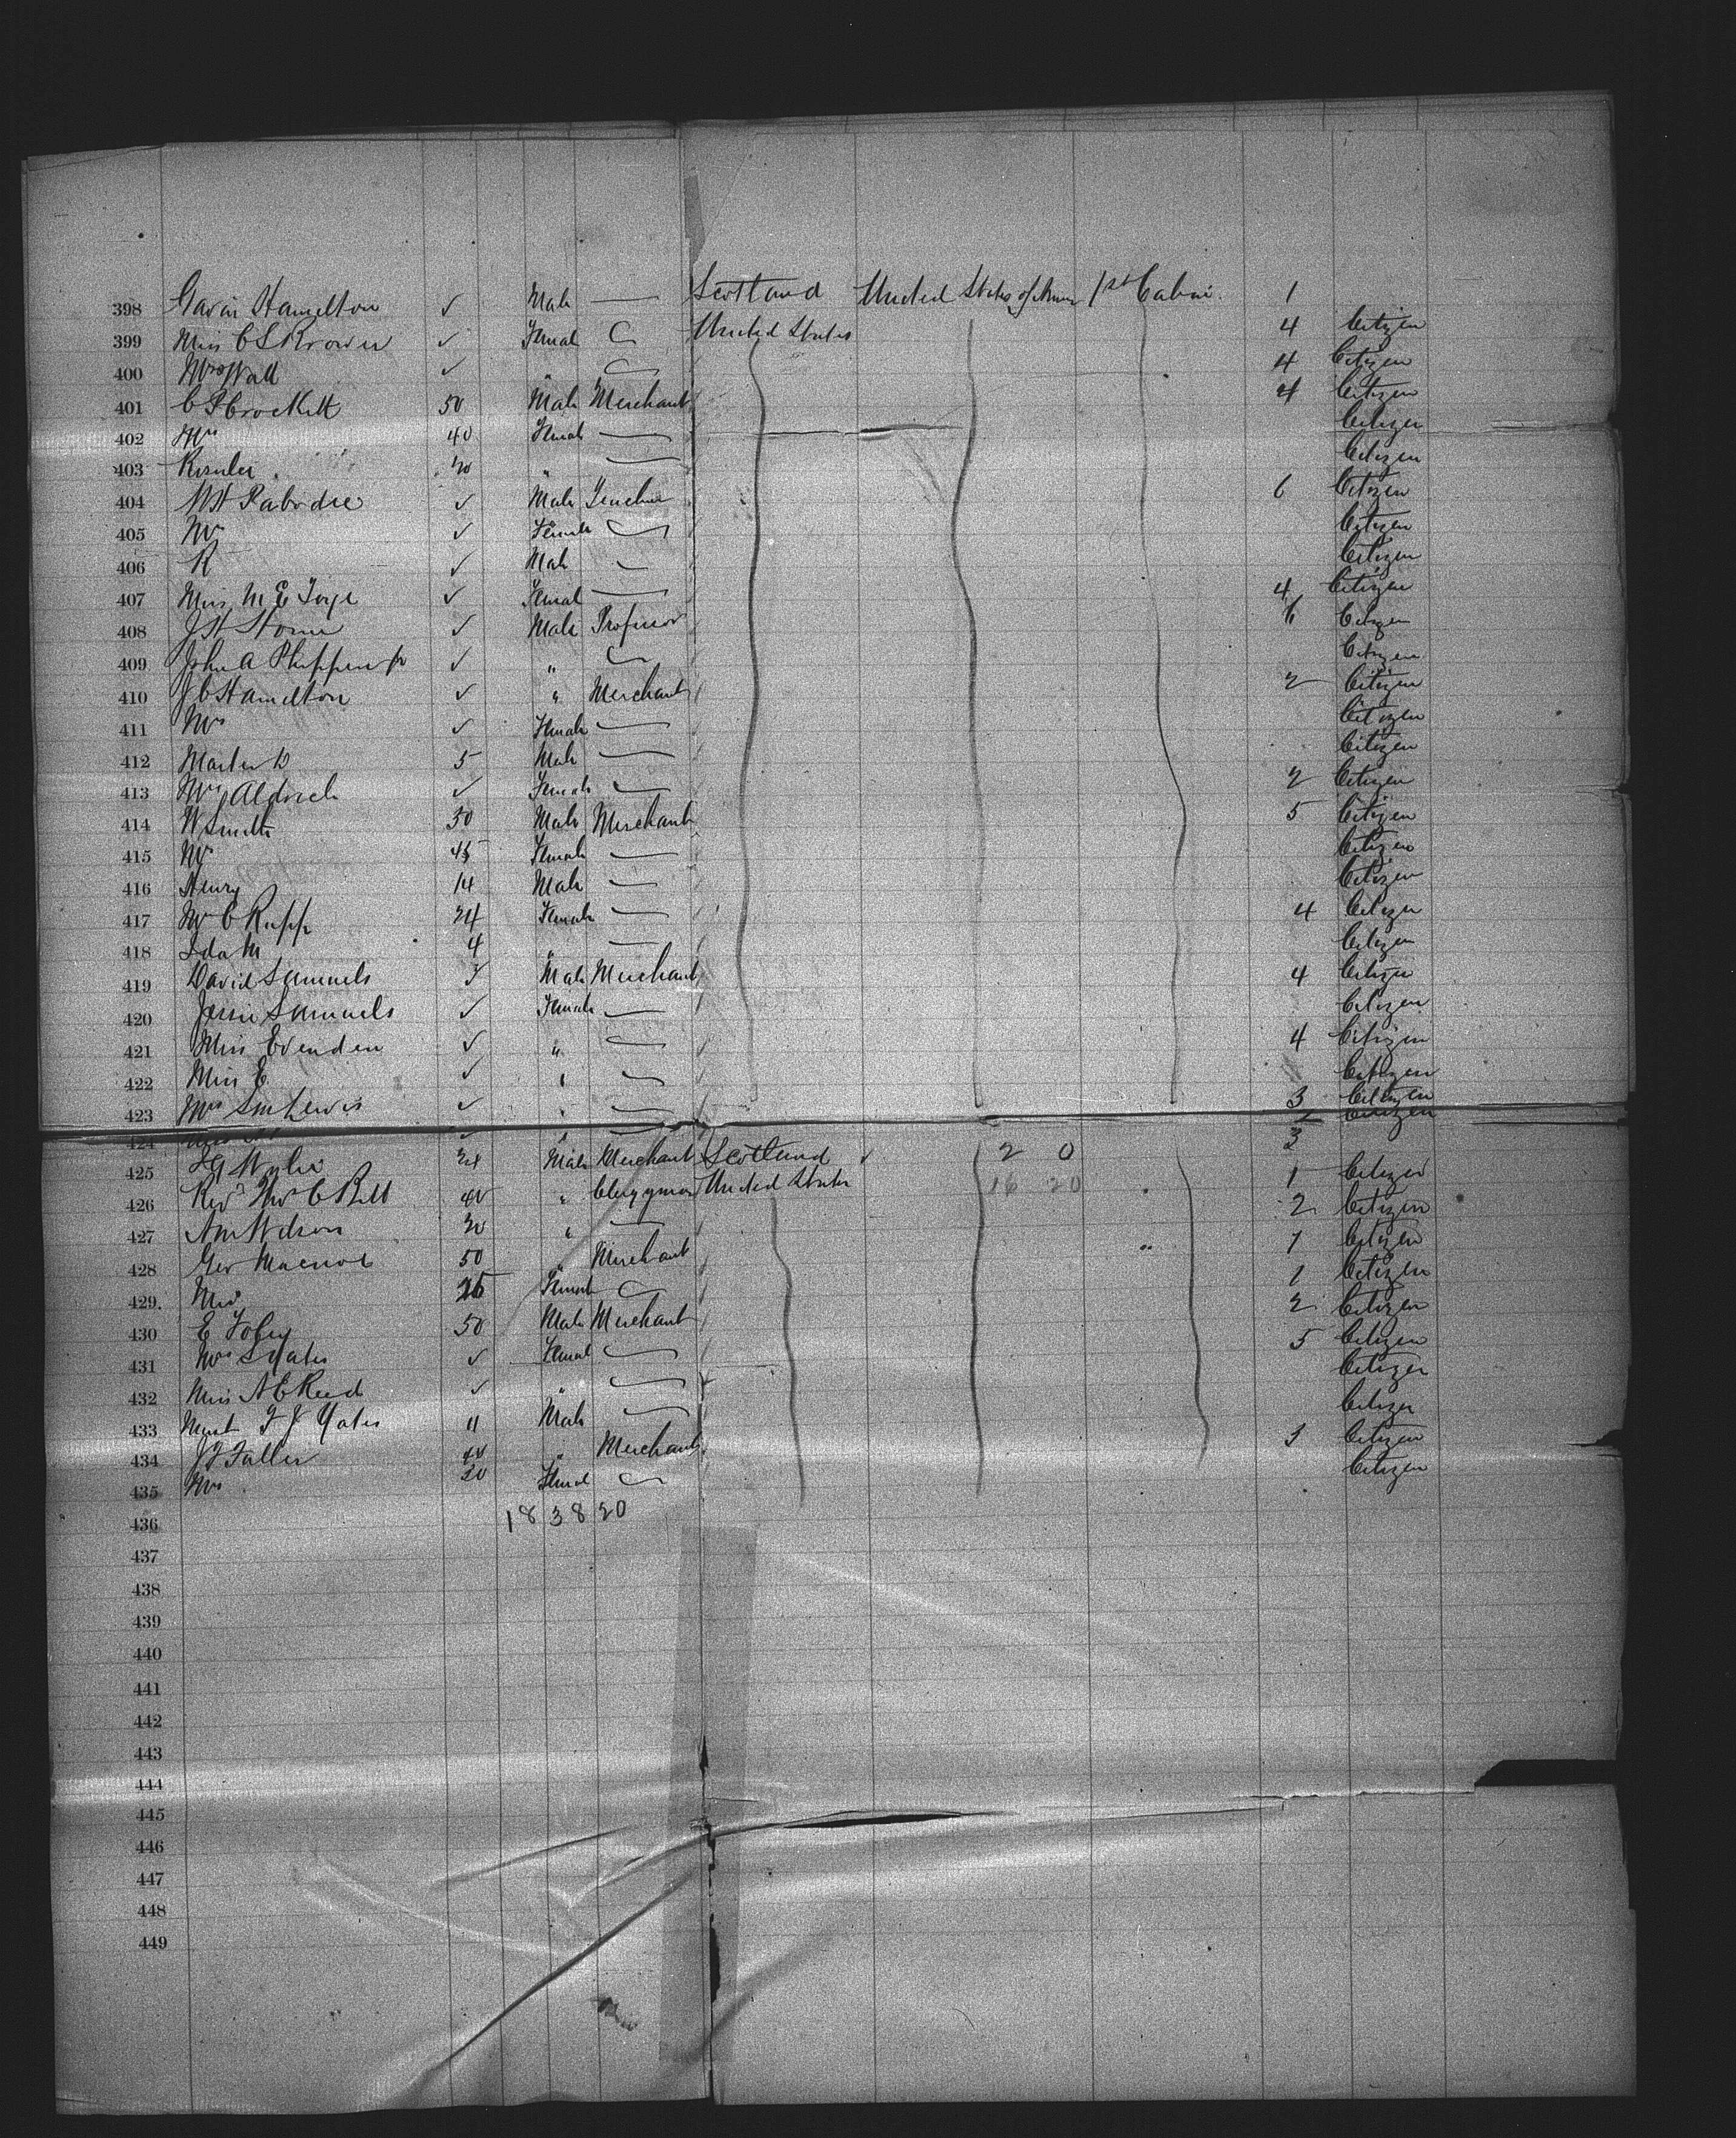 398 Gavin Hamilton ✓ Male — Scotland United States of Amer 1st Cabin. 1
399 Miss C S Brown ✓ Femal United States 4 Citizen
400 Mrs Wall ✓ " 4 Citizen
401 C P Crockett 50 Male Merchant 4 Citizen
402 Mrs 40 Female — Citizen
403 " — Citizen
404 Male 6 Citizen
405 Mrs ✓ Female Citizen
406 R ✓ Male Citizen
407 M E ✓ Femal — 4 Citizen
408 ✓ Male Professor 6 Citizen
409 John A ✓ " Citizen
410 J C Hamilton ✓ " Merchant 2 Citizen
411 Mrs ✓ Female — Citizen
412 5 Male — Citizen
413 Mrs Aldrich ✓ Female — 2 Citizen
414 W Smith 50 Male Merchant 5 Citizen
415 Mrs 45 Female — Citizen
416 Henry 14 Male — Citizen
417 Mrs C Rupp 24 Female — 4 Citizen
418 Ida M 4 " — Citizen
419 David Samuels Male Merchant 4 Citizen
420 Jessie Samuels ✓ Female — Citizen
421 Miss Evenden ✓ " 4 Citizen
422 Miss E ✓ " Citizen
423 Mrs Lewis ✓ " 3 Citizen
424 ✓ " 3 Citizen
425 Wylie 24 Male Merchant Scotland ✓ 2 0 1 Citizen
426 Revd Thos C 40 " Clergyman United States 16 20 2 Citizen
427 Wilson 30 " — 1 Citizen
428 Geo 50 " Merchant 1 Citizen
429. Mrs Femal 2 Citizen
430 E Tobey 50 Male Merchant 5 Citizen
431 Mrs S Yates ✓ Femal Citizen
432 Miss A E Reed ✓ " Citizen
433 Yates 11 Male Citizen
434 J F Faller 40 " Merchant 3 Citizen
435 Mrs 30 Femal Citizen
436 18 38 20
437
438
439
440
441
442
443
444
445
446
447
448
449